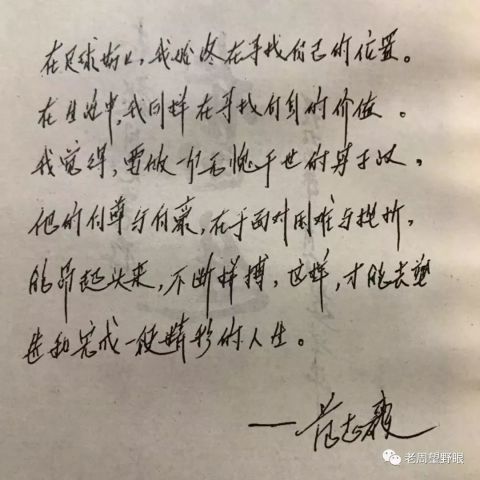 在足球场上，我始终在寻找自己的位置。
在生活中，我同样在寻找自身的价值。
我觉得，要做一个无愧于世的男子汉，
他的自尊与自豪，在于面对困难与挫折，
能昂起头来，不断拼搏，这样，才能去塑
造和完成一段精彩的人生。
——范志毅
老周望野眼